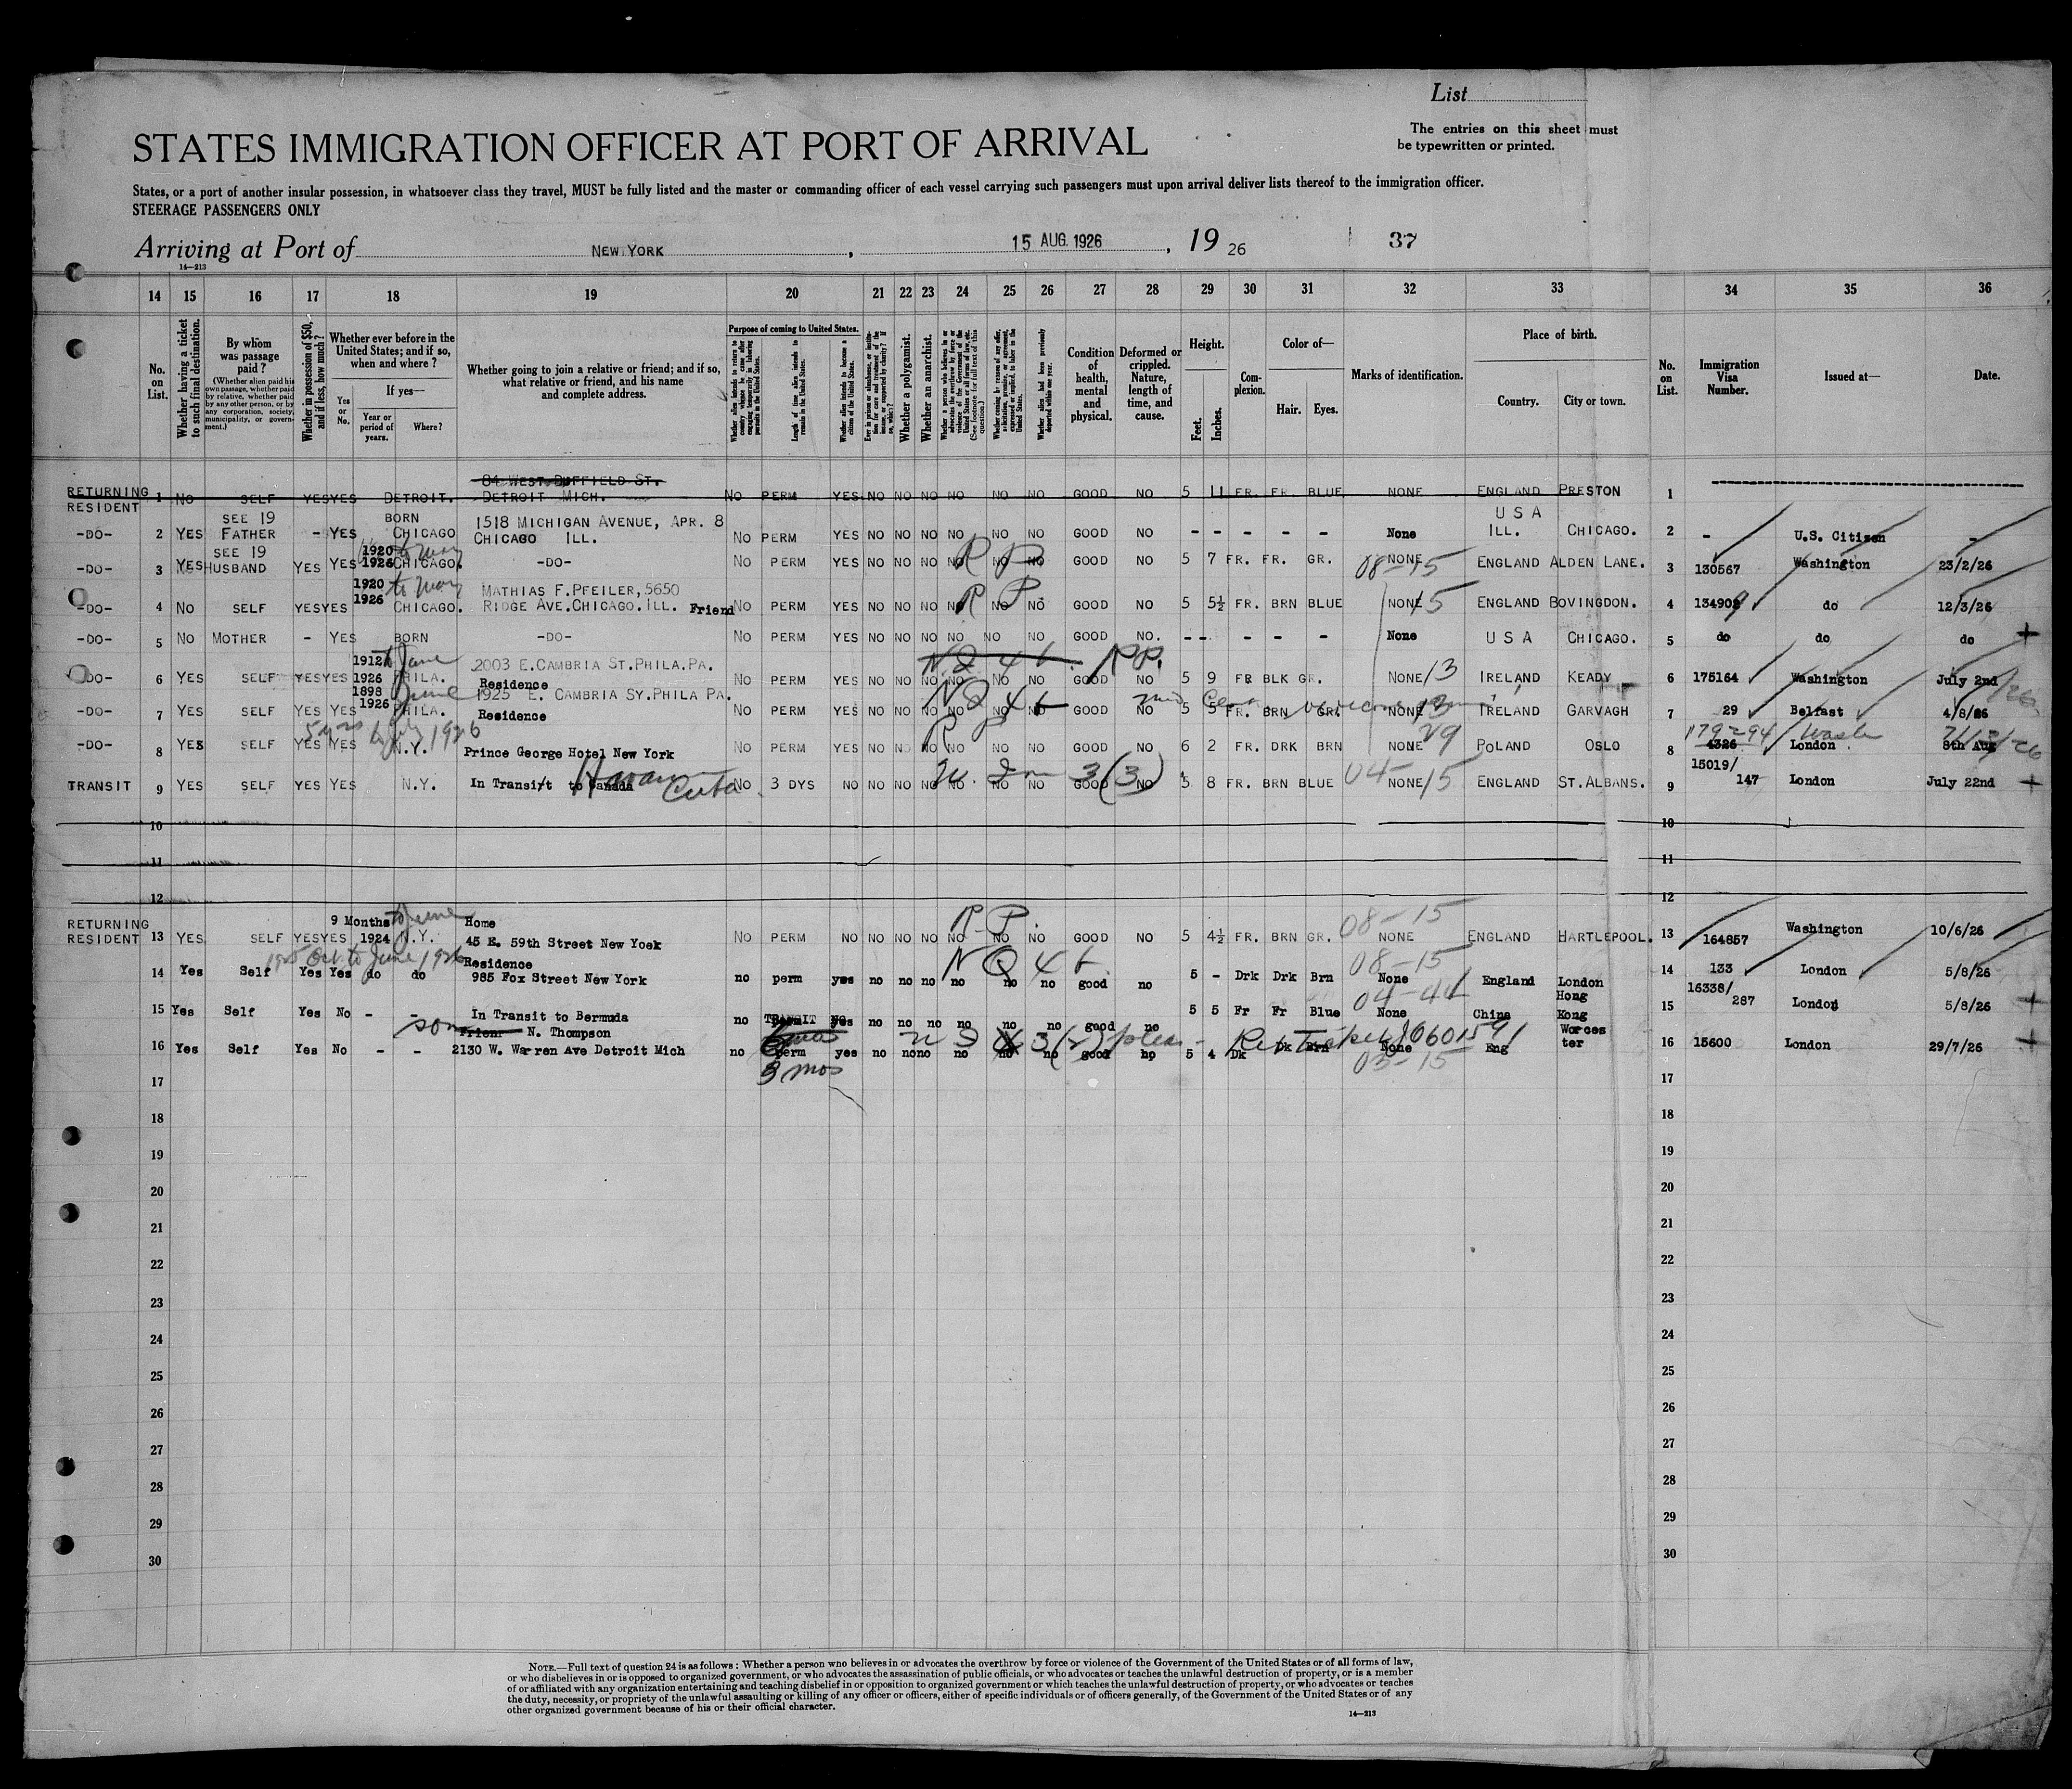 List
The entries on this sheet must
be typewritten or printed.
STATES IMMIGRATION OFFICER AT PORT OF ARRIVAL
States, or a port of another insular possession, in whatsoever class they travel, MUST be fully listed and the master or commanding officer of each vessel carrying such passengers must upon arrival deliver lists thereof to the immigration officer.
STEERAGE PASSENGERS ONLY
Arriving at Port of NEW YORK, 15 AUG. 1926, 19 26 37
14—213
14 15 16 17 18 19 20 21 22 23 24 25 26 27 28 29 30 31 32 33 34 35 36
No. on List.
Whether having a ticket to such final destination.
By whom was passage paid?
(Whether alien paid his own passage, whether paid by relative, whether paid by any other person, or by any corporation, society, municipality, or government.)
Whether in possession of $50, and if less, how much?
Whether ever before in the United States; and if so, when and where?
Yes or No.
If yes—
Year or period of years.
Where?
Whether going to join a relative or friend; and if so, what relative or friend, and his name and complete address.
Purpose of coming to United States.
Length of time alien intends to remain in the United States.
Whether alien intends to become a citizen of the United States.
Whether a polygamist.
Whether an anarchist.
Condition of health, mental and physical.
Deformed or crippled. Nature, length of time, and cause.
Height.
Feet.
Inches.
Complexion.
Color of—
Hair.
Eyes.
Marks of identification.
Place of birth.
Country.
City or town.
No. on List.
Immigration Visa Number.
Issued at—
Date.
84 WEST DUFFIELD ST.
RETURNING RESIDENT 1 NO SELF YES YES DETROIT. DETROIT MICH. NO PERM YES NO NO NO NO NO NO GOOD NO 5 11 FR. FR. BLUE NONE ENGLAND PRESTON 1
SEE 19 BORN 1518 MICHIGAN AVENUE, APR. 8 U S A
-DO- 2 YES FATHER - YES CHICAGO CHICAGO ILL. NO PERM YES NO NO NO NO NO NO GOOD NO - - - - - None ILL. CHICAGO. 2 - U.S. Citizen -
SEE 19 1920 to May
-DO- 3 YES HUSBAND YES YES 1926 CHICAGO. -DO- NO PERM YES NO NO NO NO NO NO GOOD NO 5 7 FR. FR. GR. NONE 08-15 ENGLAND ALDEN LANE. 3 130567 Washington 23/2/26
R P
1920 to May MATHIAS F. PFEILER, 5650
-DO- 4 NO SELF YES YES 1926 CHICAGO. RIDGE AVE. CHICAGO. ILL. Friend NO PERM YES NO NO NO NO NO NO GOOD NO 5 5½ FR. BRN BLUE NONE 15 ENGLAND BOVINGDON. 4 134909 do 12/3/26
R P.
-DO- 5 NO MOTHER - YES BORN -DO- NO PERM YES NO NO NO NO NO NO GOOD NO. - - - - - None U S A CHICAGO. 5 do do do +
1912 to June 2003 E. CAMBRIA ST. PHILA. PA. R.P.
-DO- 6 YES SELF YES YES 1926 PHILA. Residence NO PERM YES NO NO NO NO NO NO GOOD NO 5 9 FR BLK GR. NONE 13 IRELAND KEADY 6 175164 Washington July 2nd /26
1898 June 1925 E. CAMBRIA SY. PHILA PA. N Q 4 b
-DO- 7 YES SELF YES YES 1926 PHILA. Residence NO PERM YES NO NO NO NO NO NO GOOD NO 5 5 FR. BRN GR. NONE 13 IRELAND GARVAGH 7 29 Belfast 4/8/26
5 yrs to July 1926 R P 29 179294 Wash
-DO- 8 YES SELF YES YES N.Y. Prince George Hotel New York NO PERM YES NO NO NO NO NO NO GOOD NO 6 2 FR. DRK BRN NONE POLAND OSLO 8 4326 London 8th Aug
Havana Cuba 3(3) 04 15 15019/
TRANSIT 9 YES SELF YES YES N.Y. In Transit to Canada NO 3 DYS NO NO NO NO NO NO NO GOOD NO 5 8 FR. BRN BLUE NONE ENGLAND ST. ALBANS. 9 147 London July 22nd +
10 10
11 11
12 12
9 Months to June Home R-P. 08-15
RETURNING RESIDENT 13 YES SELF YES YES 1924 N.Y. 45 E. 59th Street New Yoek NO PERM NO NO NO NO NO NO NO GOOD NO 5 4½ FR. BRN GR. NONE ENGLAND HARTLEPOOL. 13 164857 Washington 10/6/26
1925 Oct to June 1926 Residence N Q 4 b. 08-15
14 Yes Self Yes Yes do do 985 Fox Street New York no perm yes no no no no no no good no 5 - Drk Drk Brn None England London 14 133 London 5/8/26
04-44 Hong 16338/
15 Yes Self Yes No - - In Transit to Bermuda no TRANSIT NO yes no no no no no no good no 5 5 Fr Fr Blue None China Kong 15 287 London 5/8/26 +
son Friend N. Thompson 3(2) Worces
16 Yes Self Yes No - - 2130 W. Warren Ave Detroit Mich no perm yes no no no no no no good no 5 4 Dk Dk Brn None Eng ter 16 15600 London 29/7/26 +
3 mos 03-15
17 17
18 18
19 19
20 20
21 21
22 22
23 23
24 24
25 25
26 26
27 27
28 28
29 29
30 30
NOTE.—Full text of question 24 is as follows: Whether a person who believes in or advocates the overthrow by force or violence of the Government of the United States or of all forms of law,
or who disbelieves in or is opposed to organized government, or who advocates the assassination of public officials, or who advocates or teaches the unlawful destruction of property, or is a member
of or affiliated with any organization entertaining and teaching disbelief in or opposition to organized government or which teaches the unlawful destruction of property, or who advocates or teaches
the duty, necessity, or propriety of the unlawful assaulting or killing of any officer or officers, either of specific individuals or of officers generally, of the Government of the United States or of any
other organized government because of his or their official character.
14—213